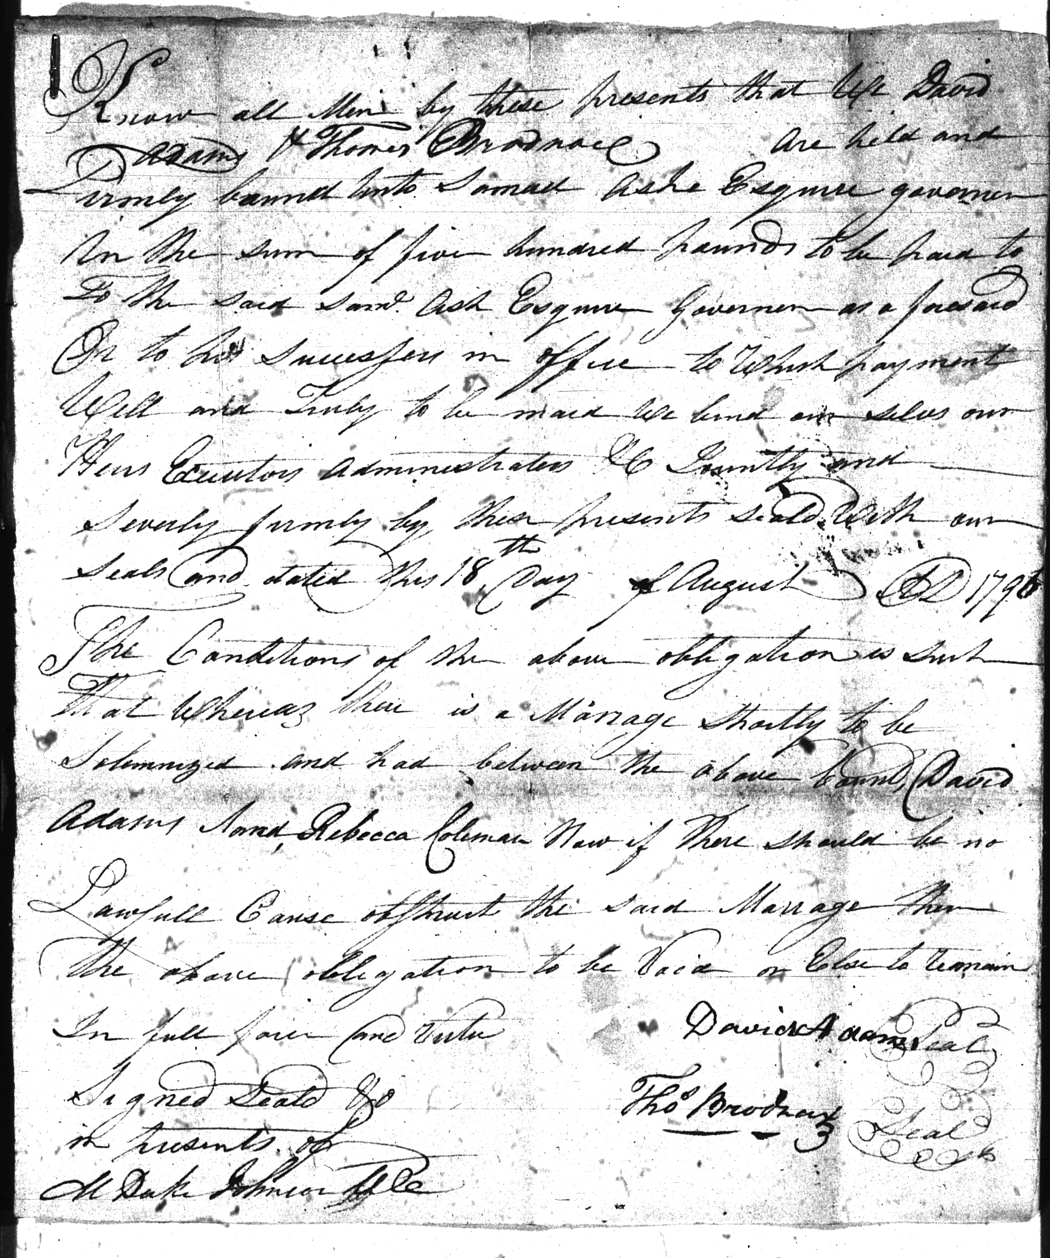 Know all Men by these presents that We David
Adams & Thomas Brodnax are held and
Firmly bound unto Samuel Ashe Esquire governer
In the sum of five hundred pounds to be paid to
To the said Saml. Ash Esquire Governer as a foresaid
Or to his Successors in office to Which payment
Well and Truly to be maid We bind our selves our
Heirs Executors Administrators &C Jointly and
Severly firmly by these presents Seald With our
Seals and dated this 18th Day of August AD 1796
The Conditions of the above obligation is Such
That Whereas there is a Marrage Shortly to be
Solemnized and had between the above bound, David
Adams and, Rebecca Coleman Now if there should be no
Lawfull Cause obstruct the said Marrage then
The above obligation to be Void or Else to remain
In full force and virtue
David Adams Seal
Signed Seald &c
Thos Brodnax Seal
in presents of
M Duke Johnson